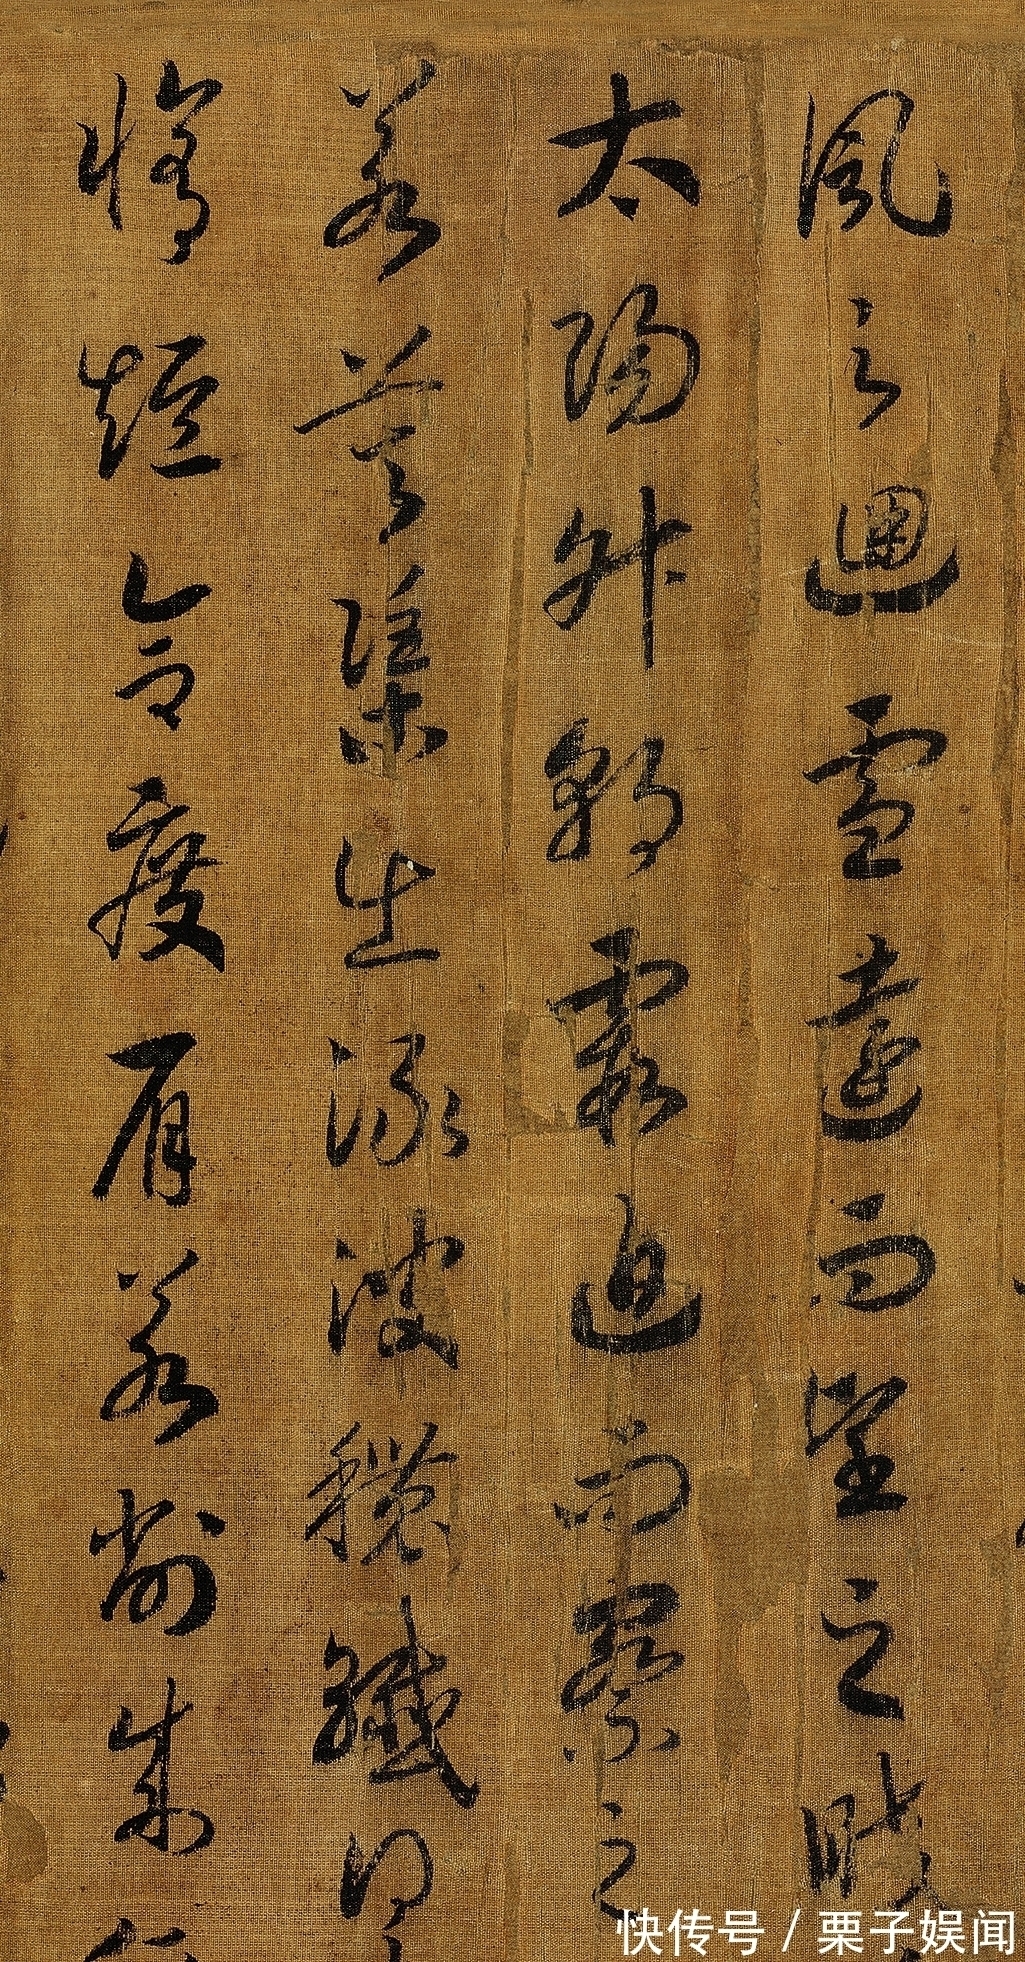 風之迴雪遠而望之皎
太陽升朝霞迫而察之
若芙渠出淥波穠纖得
脩短合度肩若削成
快传号 / 栗子娱闻